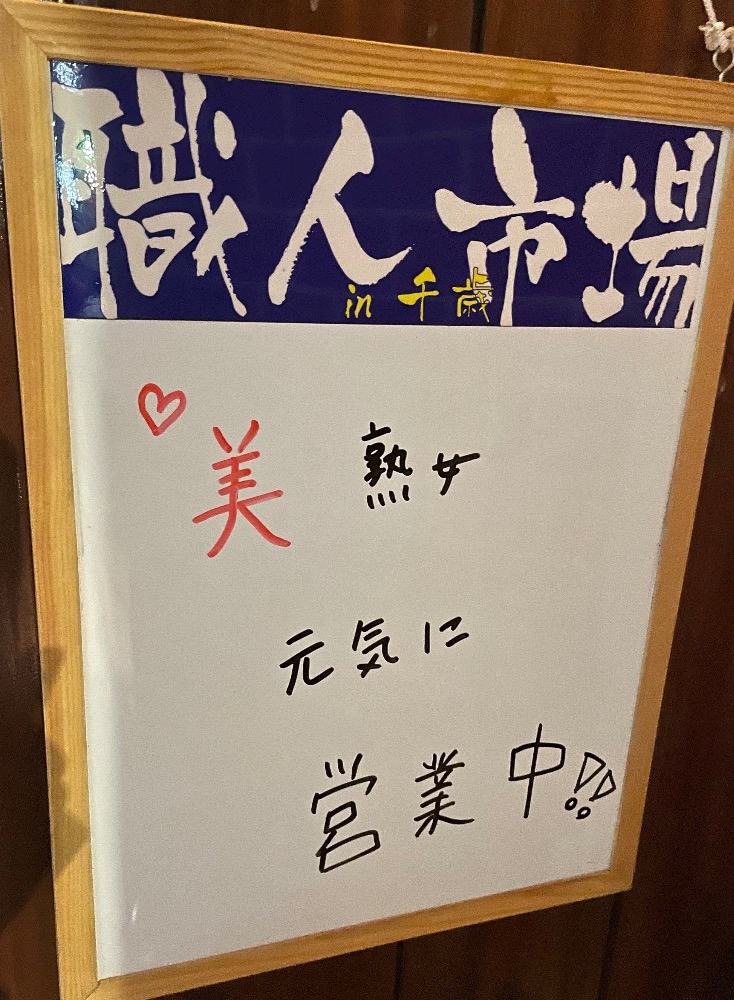 職人市場
in 千歳
♡美熟女
元気に
営業中!!